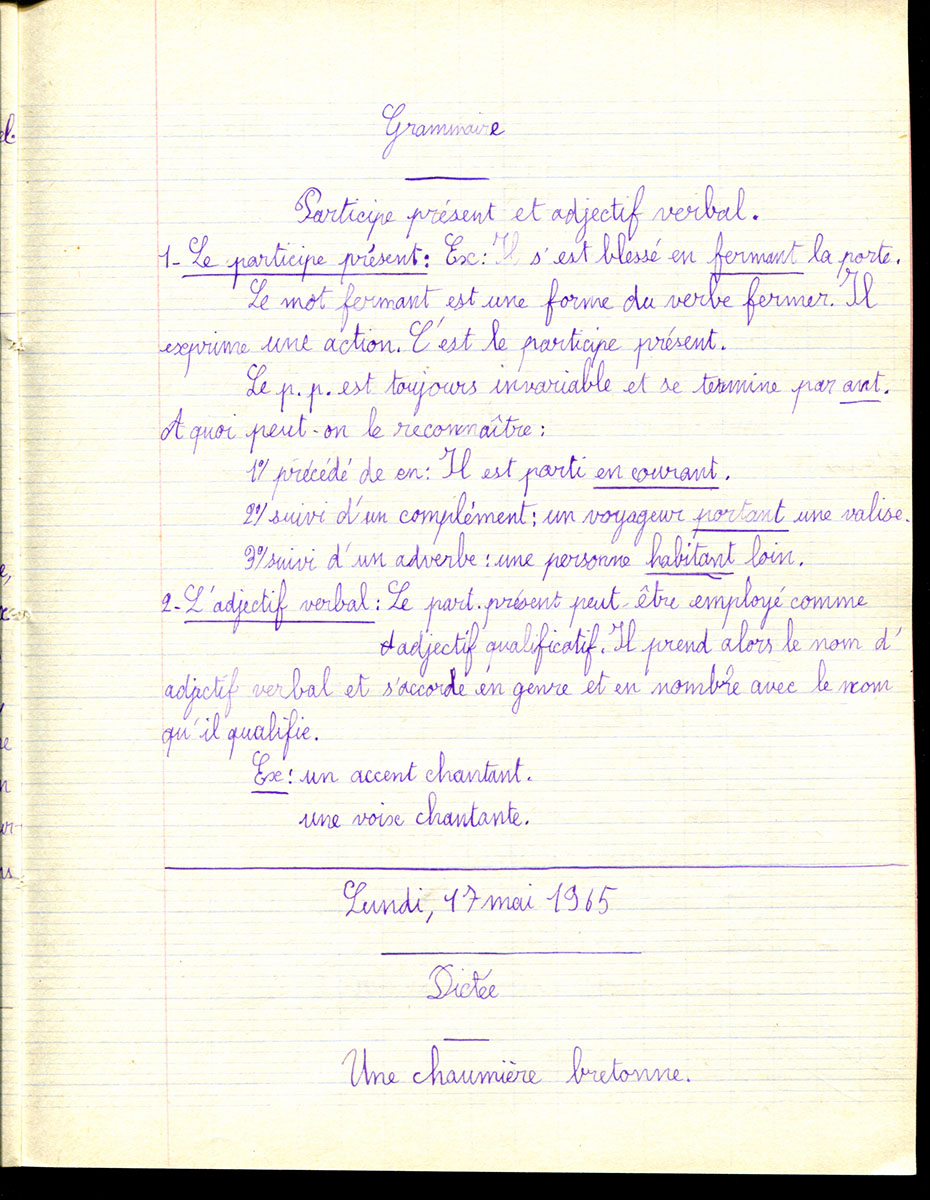 Grammaire
Participe présent et adjectif verbal.
1- Le participe présent : Ex : Il s'est blessé en fermant la porte.
Le mot fermant est une forme du verbe fermer. Il
exprime une action. C'est le participe présent.
Le p.p. est toujours invariable et se termine par ant.
A quoi peut-on le reconnaître :
1°/ précédé de en : Il est parti en courant.
2°/ suivi d'un complément : un voyageur portant une valise.
3°/ suivi d'un adverbe : une personne habitant loin.
2- L'adjectif verbal : Le part. présent peut-être employé comme
adjectif qualificatif. Il prend alors le nom d'
adjectif verbal et s'accorde en genre et en nombre avec le nom
qu'il qualifie.
Ex : un accent chantant.
une voix chantante.
Lundi, 17 mai 1965
Dictée
Une chaumière bretonne.